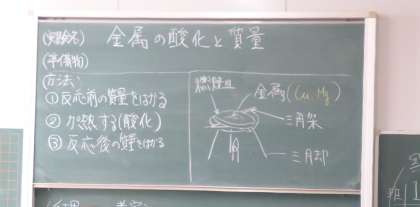 (実験名) 金属の酸化と質量
(準備物)
方法:
①反応前の質量をはかる
②加熱する(酸化)
③反応後の質量をはかる
燃焼皿
金属(Cu, Mg)
三角架
三角却